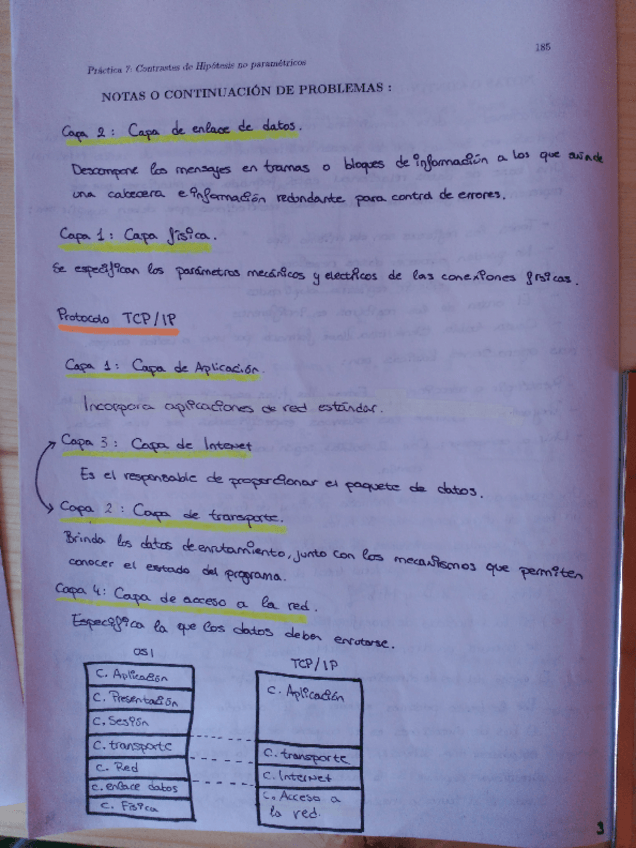 Práctica 7: Contrastes de Hipótesis no paramétricos
185
NOTAS O CONTINUACIÓN DE PROBLEMAS :
Capa 2 : Capa de enlace de datos.
Descompone los mensajes en tramas o bloques de información a los que añade
una cabecera e información redundante para control de errores.
Capa 1 : Capa física.
Se especifican los parámetros mecánicos y electricos de las conexiones físicas.
Protocolo TCP/IP
Capa 1 : Capa de Aplicación.
Incorpora aplicaciones de red estándar.
Capa 3 : Capa de Internet
Es el responsable de proporcionar el paquete de datos.
Capa 2 : Capa de transporte.
Brinda los datos de enrutamiento, junto con los mecanismos que permiten
conocer el estado del programa.
Capa 4: Capa de acceso a la red.
Especifica la que los datos deben enrutarse.
OSI
C. Aplicación
C. Presentación
C. Sesión
C. transporte
C. Red
C. enlace datos
C. Física
TCP/IP
C. Aplicación
C. transporte
C. Internet
C. Acceso a
la red.
9